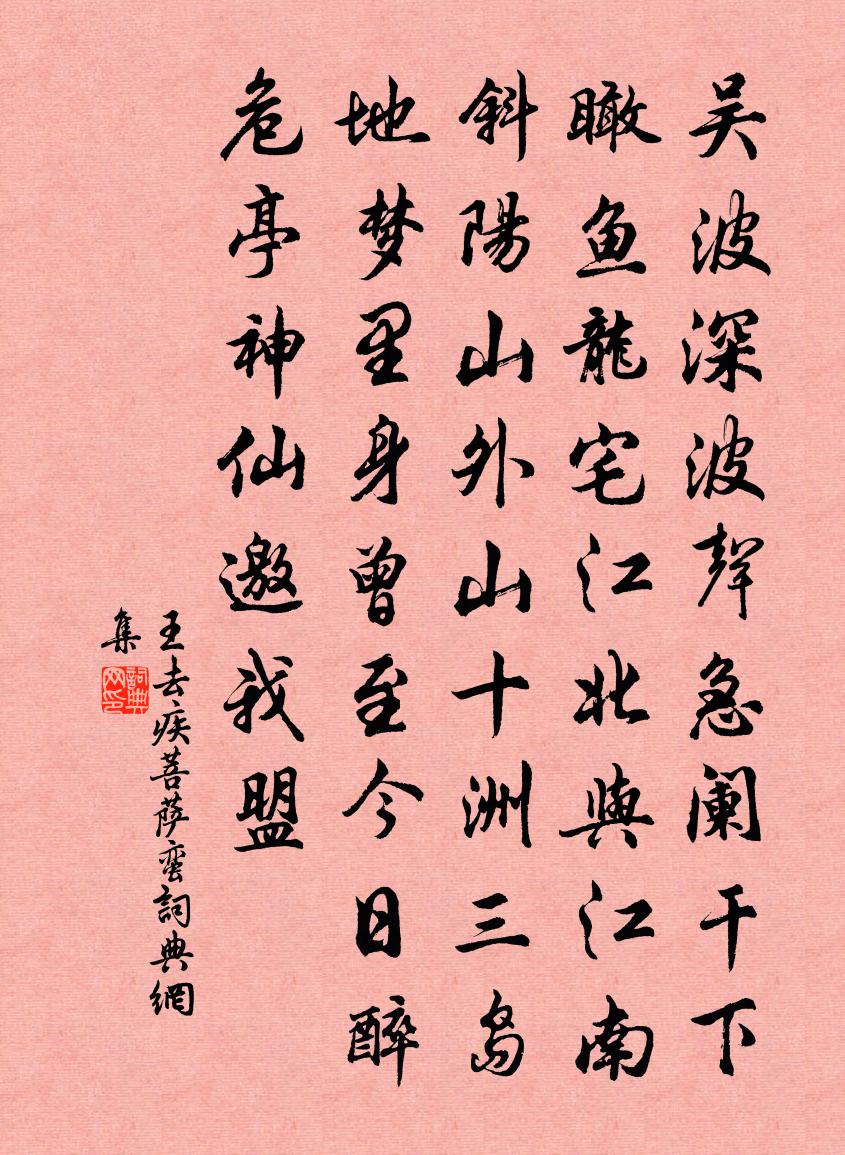 吴波深波聲急阑干下
瞰鱼龍宅江北與江南
斜陽山外山十洲三岛
地梦里身曾至今日醉
危亭神仙邀我盟
王去疾菩萨蛮詞典網
集
詞典網印